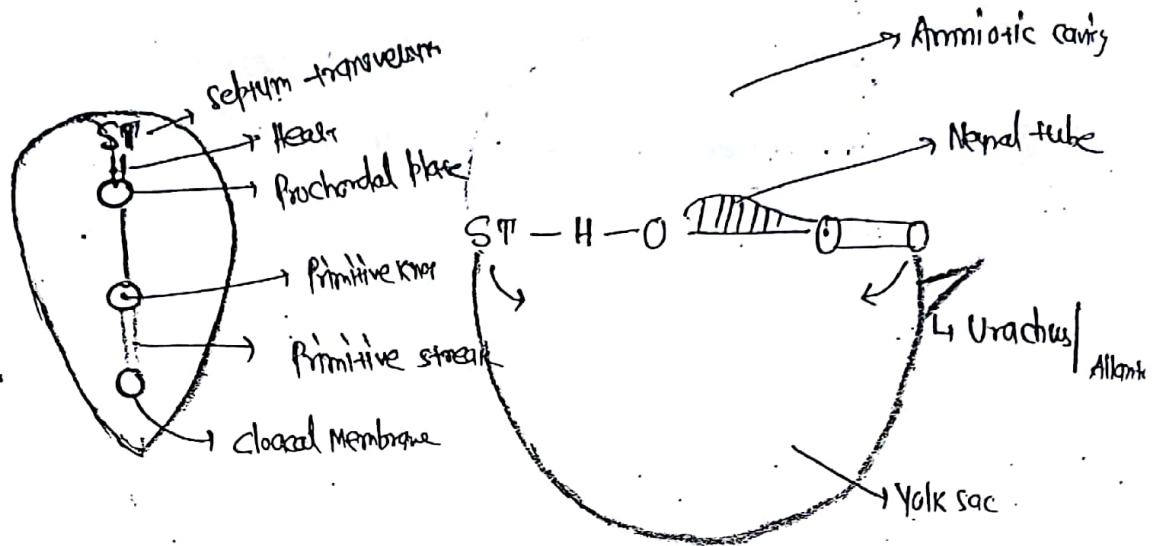 ST
septum transversum
Heart
Prochordal plate
Primitive knot
Primitive streak
Cloacal Membrane
Amniotic cavity
Neural tube
ST — H — O
Urachus/
Yolk sac